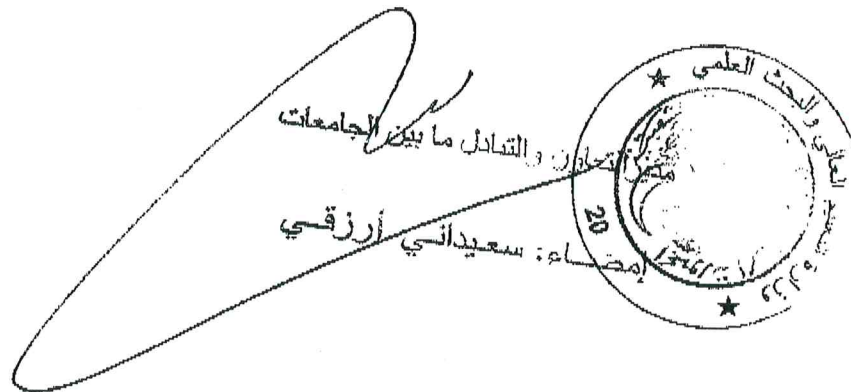 مدير التعاون والتبادل ما بين الجامعات
إمضاء: سعيداني أرزقي
وزارة التعليم العالي والبحث العلمي
20